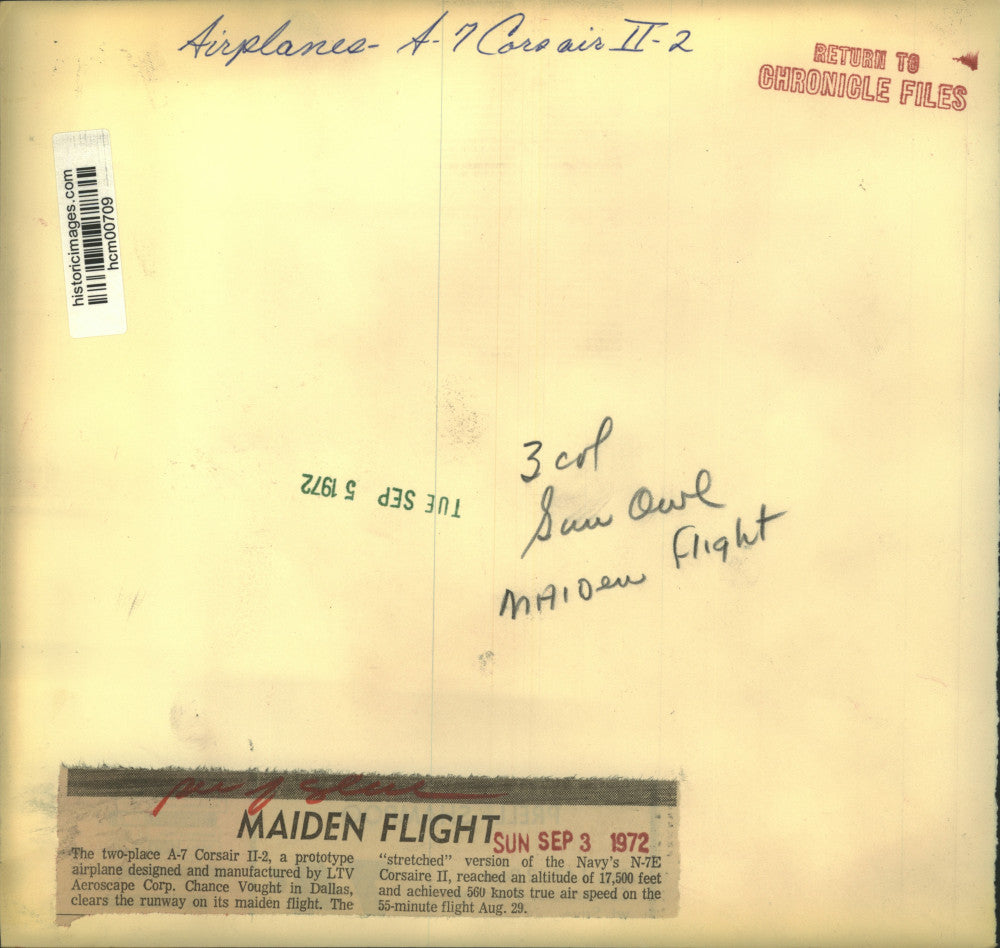 Airplanes- A-7 Corsair II-2
RETURN TO
CHRONICLE FILES
historicimages.com
hcm00709
3 col
Sun Owl
MAIDen Flight
TUE SEP 5 1972
MAIDEN FLIGHT
SUN SEP 3 1972
The two-place A-7 Corsair II-2, a prototype
airplane designed and manufactured by LTV
Aeroscape Corp. Chance Vought in Dallas,
clears the runway on its maiden flight. The
"stretched" version of the Navy's N-7E
Corsaire II, reached an altitude of 17,500 feet
and achieved 560 knots true air speed on the
55-minute flight Aug. 29.